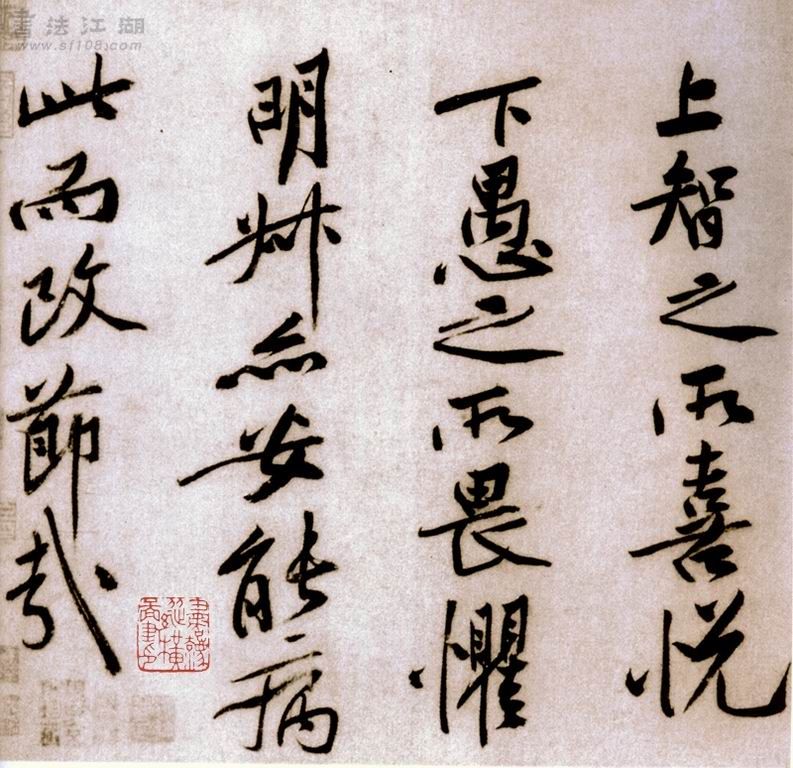 書法江湖
www.sf108.com
上智之所喜悦
下愚之所畏懼
明哉亦安能病
此而改節哉